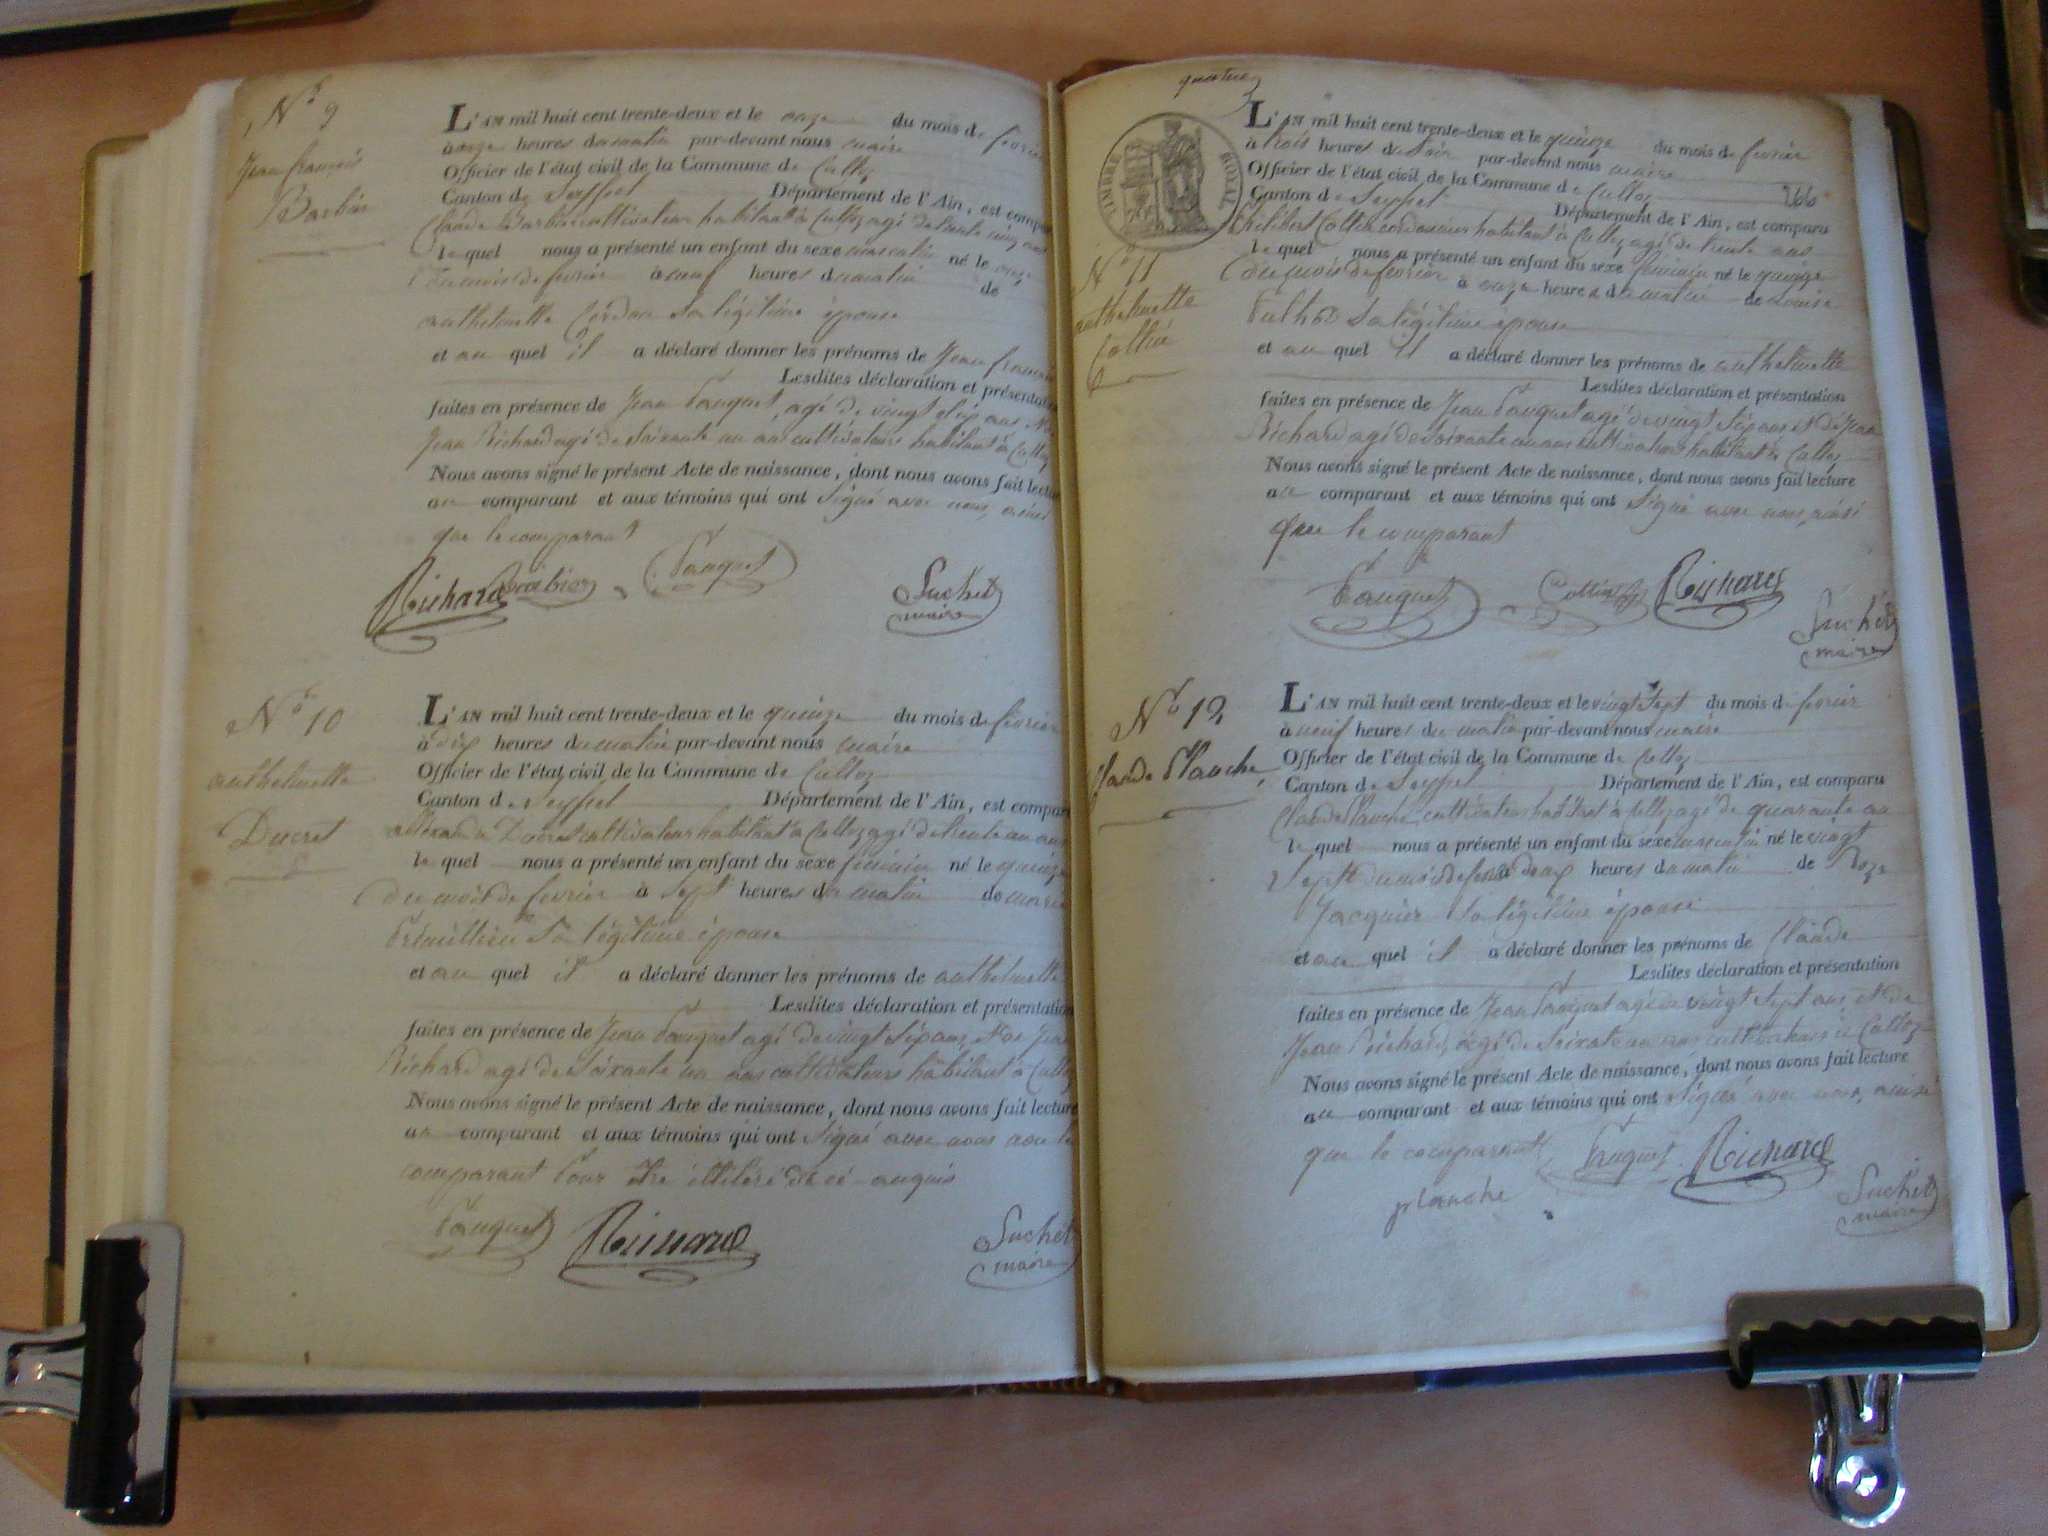 N° 9
Jean françois
Barbier
L'AN mil huit cent trente-deux et le onze du mois de fevrier
à onze heures du matin par-devant nous maire
Officier de l'état civil de la Commune de Culloz
Canton de Seyssel Département de l'Ain, est comparu
Claude Barbier cultivateur habitant à Culloz agé de trente cinq ans
le quel nous a présenté un enfant du sexe masculin né le onze
du mois de fevrier à neuf heures du matin de
anthelmette Cordon sa légitime épouse
et au quel il a déclaré donner les prénoms de Jean françois
Lesdites déclaration et présentation
faites en présence de Jean Pauquet, agé de vingt sept ans
Jean Richard agé de soixante un ans cultivateurs habitant à Culloz
Nous avons signé le présent Acte de naissance, dont nous avons fait lecture
au comparant et aux témoins qui ont signé avec nous, ainsi
que le comparant
Richard Barbier Pauquet Suchet
maire
N° 10
anthelmette
Ducret
L'AN mil huit cent trente-deux et le quinze du mois de fevrier
à dix heures du matin par-devant nous maire
Officier de l'état civil de la Commune de Culloz
Canton de Seyssel Département de l'Ain, est comparu
Ducret cultivateur habitant à Culloz agé de trente un ans
le quel nous a présenté un enfant du sexe féminin né le quinze
du mois de fevrier à sept heures du matin de marie
sa légitime épouse
et au quel il a déclaré donner les prénoms de anthelmette
Lesdites déclaration et présentation
faites en présence de Jean Pauquet agé de vingt sept ans, et de Jean
Richard agé de soixante un ans cultivateurs habitant à Culloz
Nous avons signé le présent Acte de naissance, dont nous avons fait lecture
au comparant et aux témoins qui ont signé avec nous non le
comparant pour être illitéré de ce enquis
Pauquet Richard Suchet
maire
TIMBRE ROYAL
266
N° 11
anthelmette
Collin
L'AN mil huit cent trente-deux et le quinze du mois de fevrier
à trois heures du soir par-devant nous maire
Officier de l'état civil de la Commune de Culloz
Canton de Seyssel Département de l'Ain, est comparu
Philibert Collin cordonnier habitant à Culloz agé de trente ans
le quel nous a présenté un enfant du sexe féminin né le quinze
du mois de fevrier à onze heures du matin de Louise
sa légitime épouse
et au quel il a déclaré donner les prénoms de anthelmette
Lesdites déclaration et présentation
faites en présence de Jean Pauquet agé de vingt sept ans et de Jean
Richard agé de soixante un ans cultivateurs habitant à Culloz
Nous avons signé le présent Acte de naissance, dont nous avons fait lecture
au comparant et aux témoins qui ont signé avec nous, ainsi
que le comparant
Pauquet Collin Richard Suchet
maire
N° 12
Claude Planche
L'AN mil huit cent trente-deux et le vingt sept du mois de fevrier
à neuf heures du matin par-devant nous maire
Officier de l'état civil de la Commune de Culloz
Canton de Seyssel Département de l'Ain, est comparu
Claude Planche cultivateur habitant à Culloz agé de quarante un
le quel nous a présenté un enfant du sexe masculin né le vingt
sept du mois de fevrier à deux heures du matin de Roze
Jacquier sa légitime épouse
et au quel il a déclaré donner les prénoms de Claude
Lesdites déclaration et présentation
faites en présence de Jean Pauquet agé de vingt sept ans et de
Jean Richard, agé de soixante un ans cultivateurs à Culloz
Nous avons signé le présent Acte de naissance, dont nous avons fait lecture
au comparant et aux témoins qui ont signés avec nous, ainsi
que le comparant Pauquet Richard
planche Suchet
maire